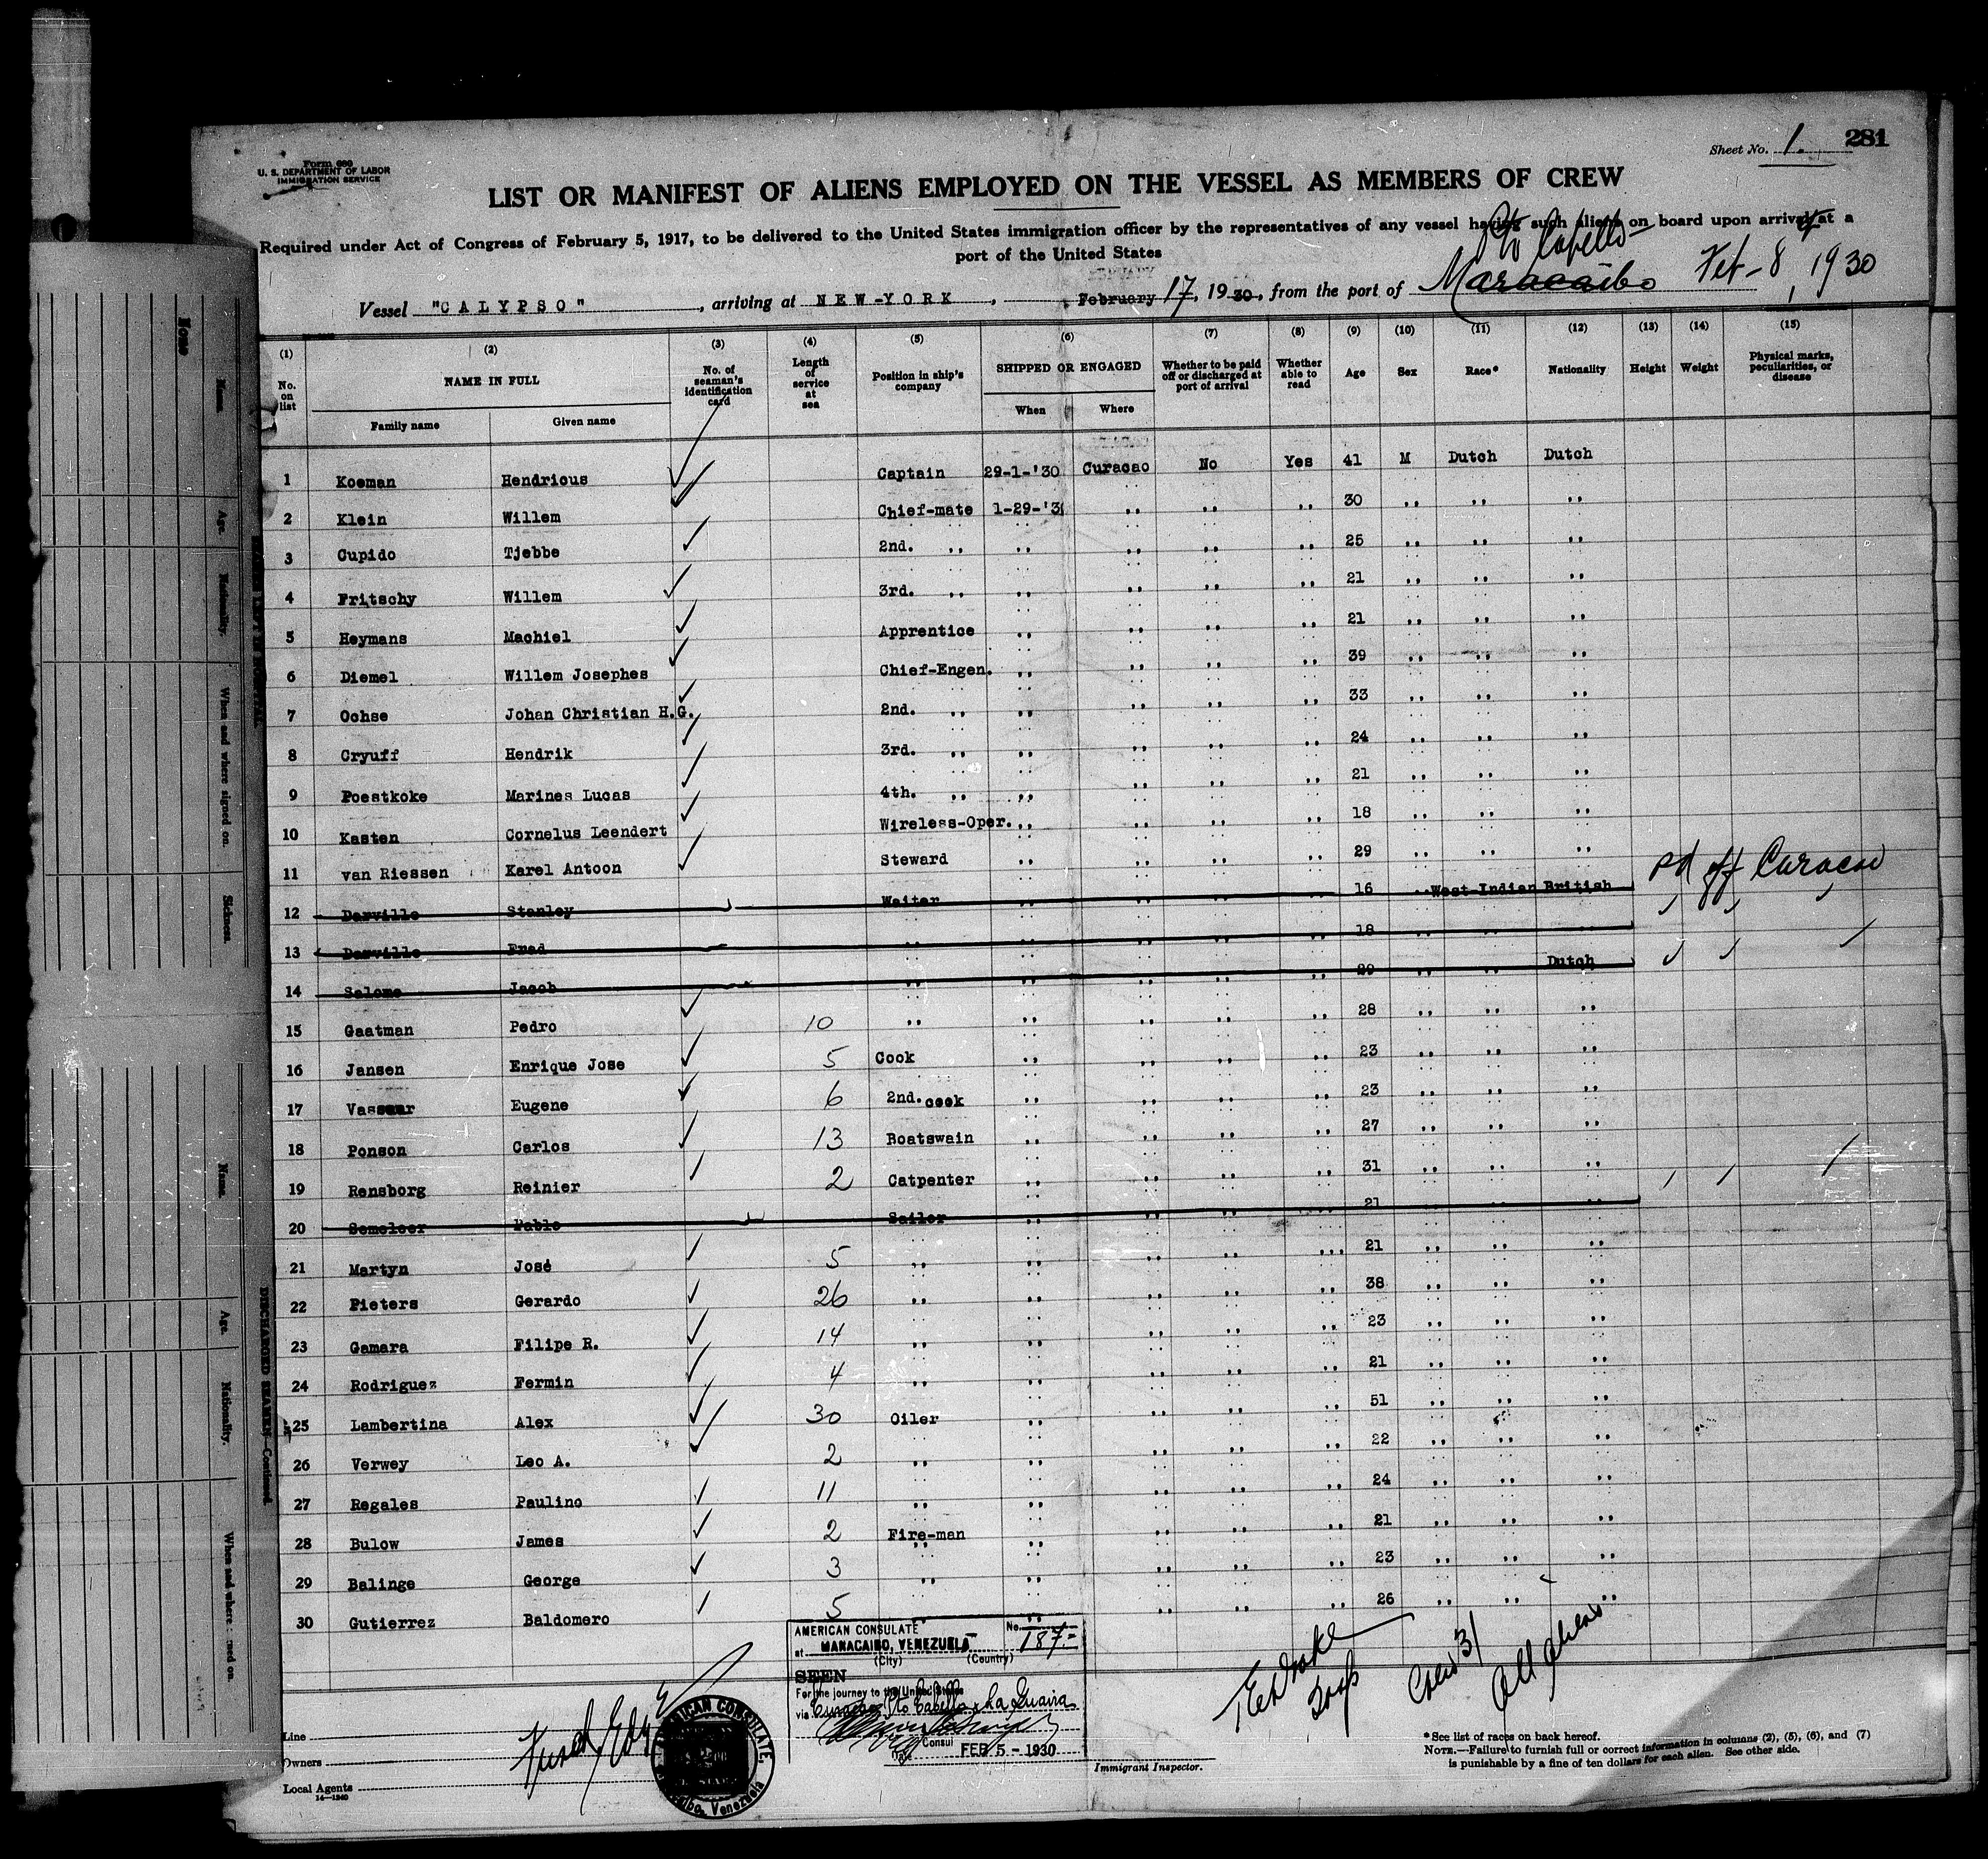 Sheet No. 1. 281
Form 680
U. S. DEPARTMENT OF LABOR
IMMIGRATION SERVICE
LIST OR MANIFEST OF ALIENS EMPLOYED ON THE VESSEL AS MEMBERS OF CREW
Required under Act of Congress of February 5, 1917, to be delivered to the United States immigration officer by the representatives of any vessel having such aliens on board upon arrival at a
port of the United States
Pto Cabello
Vessel "CALYPSO", arriving at NEW-YORK, February 17, 1930, from the port of Maracaibo Feb - 8, 1930
(1) (2) (3) (4) (5) (6) (7) (8) (9) (10) (11) (12) (13) (14) (15)
No. on list NAME IN FULL No. of seaman's identification card Length of service at sea Position in ship's company SHIPPED OR ENGAGED Whether to be paid off or discharged at port of arrival Whether able to read Age Sex Race* Nationality Height Weight Physical marks, peculiarities, or disease
Family name Given name When Where
1 Koeman Hendricus Captain 29-1-'30 Curacao No Yes 41 M Dutch Dutch
2 Klein Willem Chief-mate 1-29-'3 ,, ,, ,, 30 ,, ,, ,,
3 Cupido Tjebbe 2nd. ,, ,, ,, ,, ,, 25 ,, ,, ,,
4 Fritschy Willem 3rd. ,, ,, ,, ,, ,, 21 ,, ,, ,,
5 Heymans Machiel Apprentice ,, ,, ,, ,, 21 ,, ,, ,,
6 Diemel Willem Josephes Chief-Engen. ,, ,, ,, ,, 39 ,, ,, ,,
7 Ochse Johan Christian H.G. 2nd. ,, ,, ,, ,, ,, 33 ,, ,, ,,
8 Cryuff Hendrik 3rd. ,, ,, ,, ,, ,, 24 ,, ,, ,,
9 Poestkoke Marines Lucas 4th. ,, ,, ,, ,, ,, 21 ,, ,, ,,
10 Kasten Cornelus Leendert Wireless-Oper. ,, ,, ,, ,, 18 ,, ,, ,,
11 van Riessen Karel Antoon Steward ,, ,, ,, ,, 29 ,, ,, ,,
12 Darville Stanley Waiter ,, ,, ,, ,, 16 ,, West-Indian British pd off Curacao
13 Darville Fred ,, ,, ,, ,, ,, 18 ,, ,, ,,
14 Salome Jacob ,, ,, ,, ,, ,, 29 ,, ,, Dutch
15 Gaatman Pedro 10 ,, ,, ,, ,, ,, 28 ,, ,, ,,
16 Jansen Enrique Jose 5 Cook ,, ,, ,, ,, 23 ,, ,, ,,
17 Vassaur Eugene 6 2nd. cook ,, ,, ,, ,, 23 ,, ,, ,,
18 Ponson Carlos 13 Boatswain ,, ,, ,, ,, 27 ,, ,, ,,
19 Rensborg Reinier 2 Catpenter ,, ,, ,, ,, 31 ,, ,, ,,
20 Semeleer Pablo Sailor ,, ,, ,, ,, 21 ,, ,, ,,
21 Martyn José 5 ,, ,, ,, ,, ,, 21 ,, ,, ,,
22 Pieters Gerardo 26 ,, ,, ,, ,, ,, 38 ,, ,, ,,
23 Gamara Filipe R. 14 ,, ,, ,, ,, ,, 23 ,, ,, ,,
24 Rodriguez Fermin 4 ,, ,, ,, ,, ,, 21 ,, ,, ,,
25 Lambertina Alex 30 Oiler ,, ,, ,, ,, 51 ,, ,, ,,
26 Verwey Leo A. 2 ,, ,, ,, ,, ,, 22 ,, ,, ,,
27 Regales Paulino 11 ,, ,, ,, ,, ,, 24 ,, ,, ,,
28 Bulow James 2 Fire-man ,, ,, ,, ,, 21 ,, ,, ,,
29 Balinge George 3 ,, ,, ,, ,, ,, 23 ,, ,, ,,
30 Gutierrez Baldomero 5 ,, ,, ,, ,, ,, 26 ,, ,, ,,
AMERICAN CONSULATE No. 187.-
at MARACAIBO, VENEZUELA
(City) (Country)
SEEN
For the journey to the United States
via Curacao, Pto Cabello & La Guaira
Consul
Date FEB 5 - 1930
AMERICAN CONSULATE
Venezuela
Crew 31
Line
Owners
Local Agents
14—1240
Immigrant Inspector.
*See list of races on back hereof.
NOTE.—Failure to furnish full or correct information in columns (2), (5), (6), and (7)
is punishable by a fine of ten dollars for each alien. See other side.
Name
Name.
Age.
Nationality.
When and where signed on.
Sickness.
Name.
Age.
Nationality.
DISCHARGED SEAMEN—Continued.